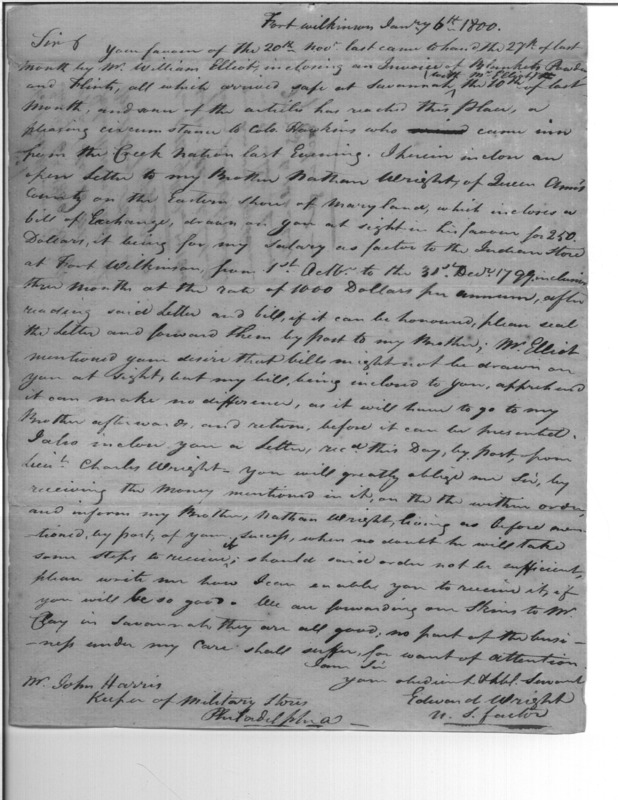 Fort Wilkinson Janry 6th 1800.
Sir
your favour of the 20th Novr last came to hand the 27th of last
month by Mr. William Elliot, inclosing an Invoice of Blankets, Powder
and Flints, all which arrived safe at Savannah, (with Mr. Elliot) the 10th of last
Month, and some of the article has reached this Place, a
pleasing circumstance to Colo Hawkins who came inn
from the Creek Nation last Evening. I herein inclose an
open Letter to my Brother Nathan Wright, of Queen Ann's
County on the Eastern Shore of Maryland, which incloses a
bill of Exchange, drawn on you at sight in his favour for 250
Dollars, it being for my Salary as factor to the Indian Store
at Fort Wilkinson, from 1st Octbr. to the 31st Decr. 1799, inclusive
three months at the rate of 1000 Dollars per annum, after
reading said Letter and bill, if it can be honoured, please seal
the Letter and forward them by post to my Brother; Mr. Elliot
mentioned your desire that bills might not be drawn on
you at Sight, but my bill, being inclosed to you, apprehend
it can make no difference, as it will have to go to my
Brother afterwards, and return, before it can be presented.
I also inclose you a Letter, recd. this Day, by post, from
Lieut. Charles Wright - you will greatly oblige me Sir, by
receiving the money mentioned in it, on the the within order,
and inform my Brother, Nathan Wright, living as before men
-tioned, by post, of your success, when no doubt he will take
some steps to receive it; should said order not be sufficient,
please write me how I can enable you to receive it, if
you will be so good. We are forwarding our Skins to Mr.
Clay in Savannah, they are all good, no part of the busi-
-ness under my care shall suffer, for want of attention
I am Sir
your obedient & hbl. Servant
Edward Wright
U. S. factor
Mr. John Harris
Keeper of Military Stores
Philadelphia